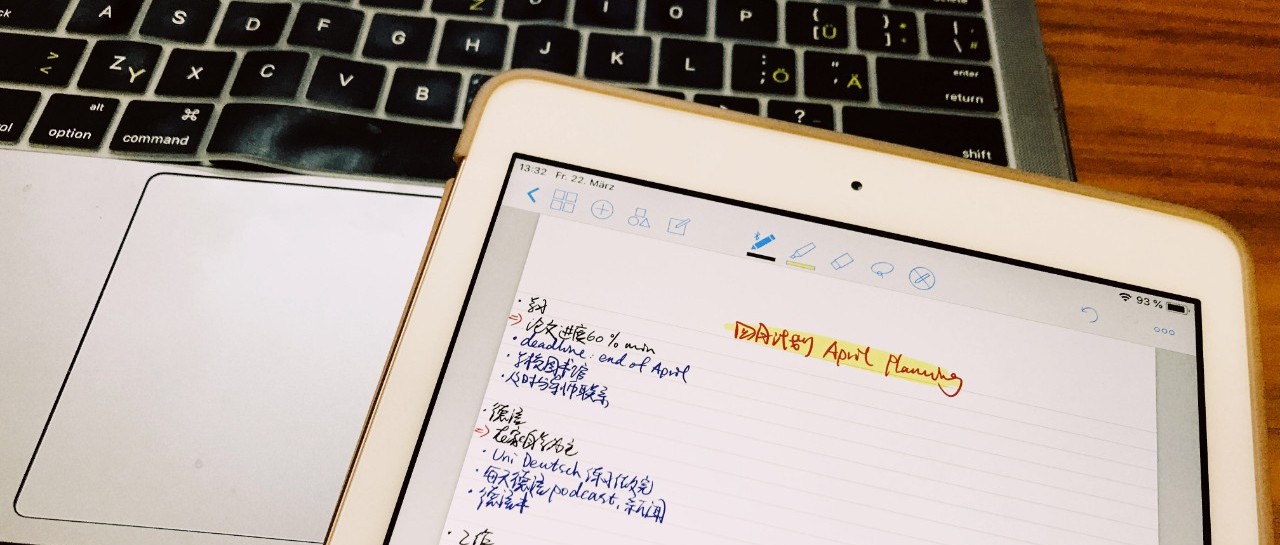 A S D F G H J K L
Z Y X C V B
alt
option
⌘
command
O P { [ Ü } ] | \
: ; Ö " ' Ä enter
return
? shift
13:32 Fr. 22. März
93 %
四月计划 April Planning
· 学习
⇒ 论文进度60% min
· deadline: end of April
· 学校图书馆
· 及时与导师联系
· 德语
⇒ 在家自学为主
· Uni Deutsch 练习做完
· 每天德语podcast, 新闻
· 德语书
· 工作